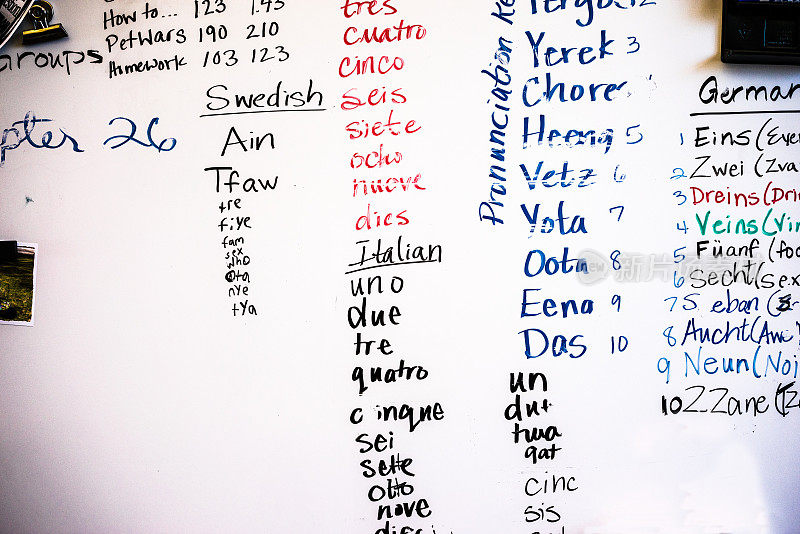 How to... 123 143
PetWars 190 210
Homework 103 123
groups
pter 26
Swedish
Ain
Tfaw
tre
fiye
fam
sex
who
ota
nye
tya
tres
cuatro
cinco
seis
siete
ocho
nuove
dies
Italian
uno
due
tre
quatro
cinque
sei
sette
otto
nove
Pronunciation
Yerek 3
Chore
Heeng 5
Vetz 6
Yota 7
Oota 8
Eena 9
Das 10
un
twa
qat
cinc
sis
German
1 Eins (Even
2 Zwei (Zva
3 Dreins (Dri
4 Veins (Vin
5 Füanf (foo
6 Secht (sex
7 Seban (
8 Aucht (Awc
9 Neun (Noi
10 ZZane (